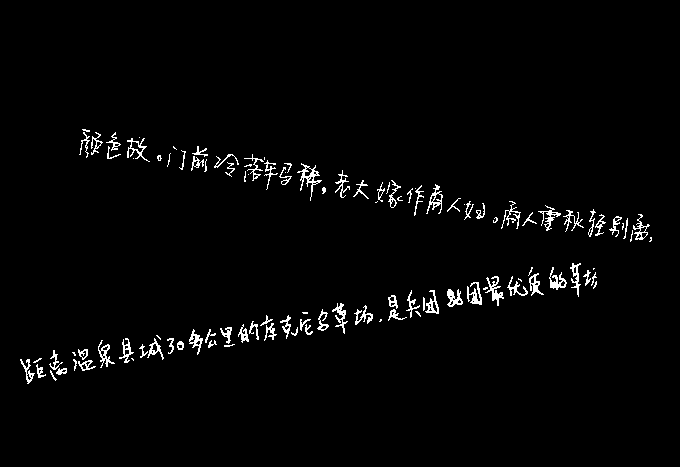 颜色故。门前冷落车马稀,老大嫁作商人妇。商人重秋轻别离,
距离温泉县城30多公里的库克它乌草场,是兵团88团最优质的草场